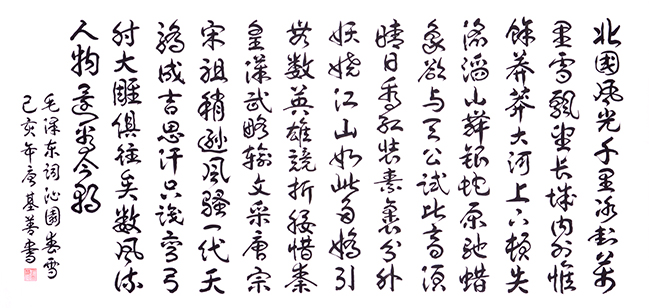 北國风光千里冰封萬
里雪飘望长城内外惟
餘莽莽大河上下顿失
滔滔山舞银蛇原驰蜡
象欲与天公试比高须
晴日看红装素裹分外
妖娆江山如此多娇引
無数英雄競折腰惜秦
皇漢武略输文采唐宗
宋祖稍逊风骚一代天
骄成吉思汗只识弯弓
射大雕俱往矣数风流
人物還看今朝
毛泽东词沁园春雪
己亥年唐基善書